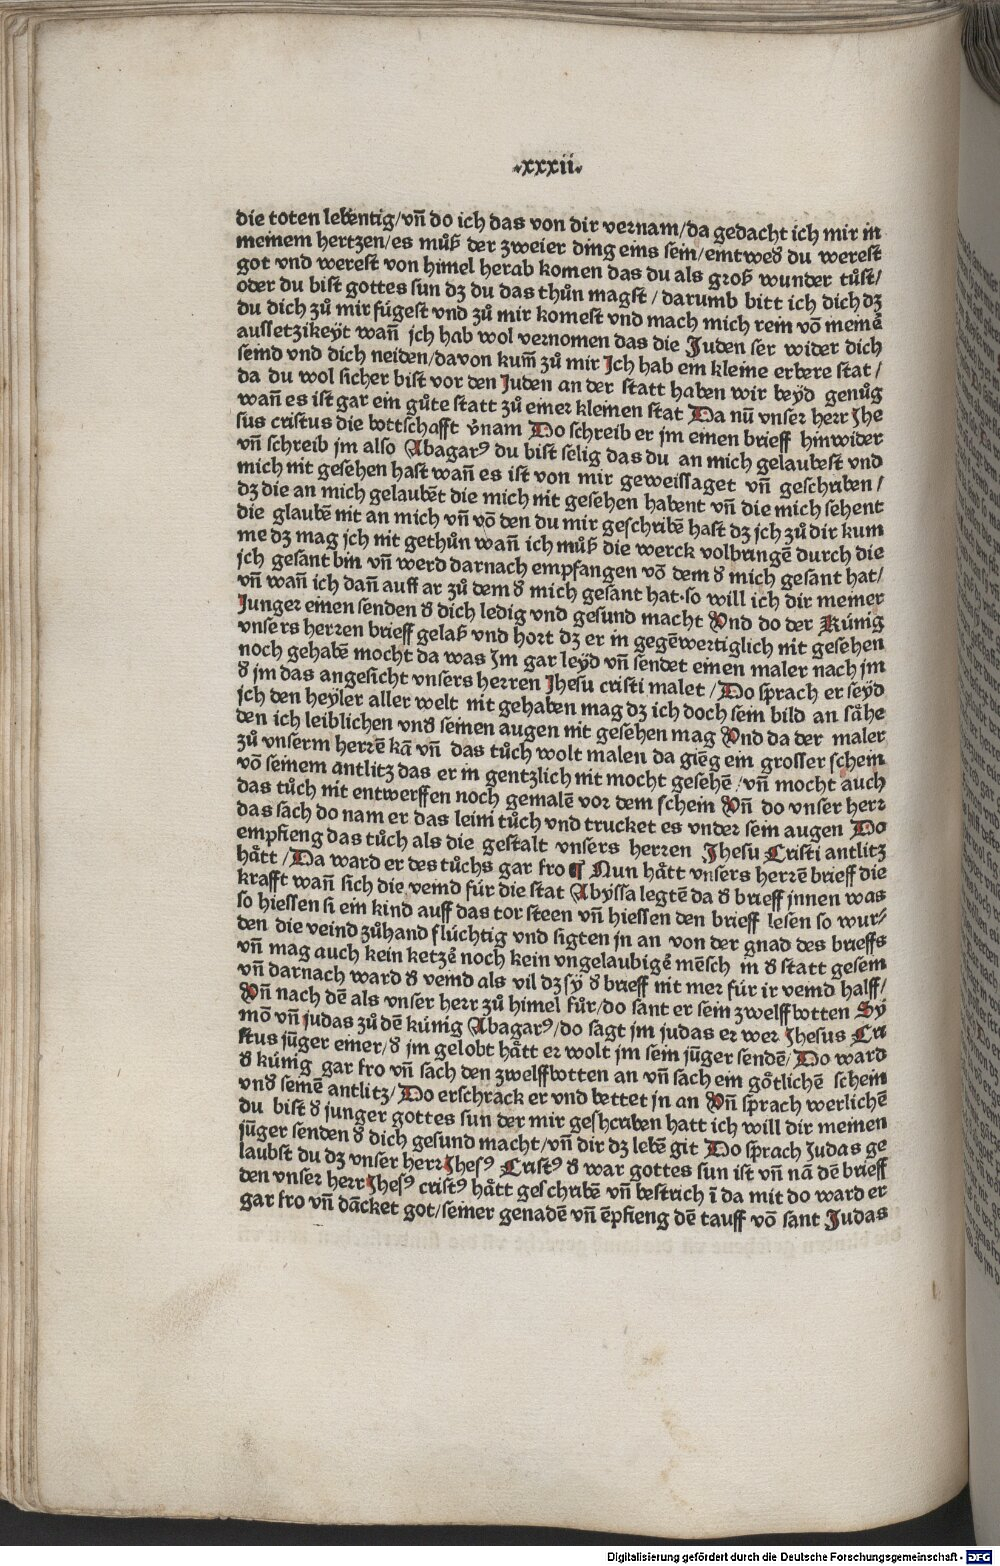 .xxxii.
die toten lebentig/vñ do ich das von dir vernam/da gedacht ich mir in
meinem hertzen/es můß der zweier ding eins sein/eintweď du werest
got vnd werest von himel herab komen das du als groß wunder tůst/
oder du bist gottes sun dz du das thůn magst/darumb bitt ich dich dz
du dich zů mir fůgest vnd zů mir komest vnd mach mich rein võ meinẽ
aussetzikeyt wañ ich hab wol vernomen das die Juden ser wider dich
seind vnd dich neiden/davon kum̃ zů mir Ich hab ein kleine erbere stat/
da du wol sicher bist vor den Juden an der statt haben wir beyd genůg
wañ es ist gar ein gůte statt zů einer kleinen stat Da nũ vnser herr Jhe
sus cristus die bottschafft v̕nam Do schreib er jm einen brieff hinwider
vñ schreib jm also Abagarꝰ du bist selig das du an mich gelaubest vnd
mich nit gesehen hast wañ es ist von mir geweissaget vñ geschriben/
dz die an mich gelaubẽt die mich nit gesehen habent vñ die mich sehent
die glaubẽ nit an mich vñ võ den du mir geschribẽ hast dz jch zů dir kum
me dz mag jch nit gethůn wañ ich můß die werck volbringẽ durch die
jch gesant bin vñ werd darnach empfangen võ dem ď mich gesant hat/
vñ wañ ich dañ auff far zů dem ď mich gesant hat·so will ich dir meiner
Junger einen senden ď dich ledig vnd gesund macht Vnd do der Kúnig
vnsers herren brieff gelaß vnd hort dz er in gegẽwertiglich nit gesehen
noch gehabẽ mocht da was Jm gar leyd vñ sendet einen maler nach jm
ď jm das angesicht vnsers herren Jhesu cristi malet/Do sprach er seyd
jch den heyler aller welt nit gehaben mag dz ich doch sein bild an såhe
den ich leiblichen vnď seinen augen nit gesehen mag Vnd da der maler
zů vnserm herrẽ kã vñ das tůch wolt malen da giẽg ein grosser schein
võ seinem antlitz das er in gentzlich nit mocht gesehẽ/vñ mocht auch
das tůch nit entwerffen noch gemalẽ vor dem schein Vñ do vnser herr
das sach do nam er das leini tůch vnd trucket es vnder sein augen Do
empfieng das tůch als die gestalt vnsers herren Jhesu Cristi antlitz
hått/Da ward er des tůchs gar fro ¶ Nun hått vnsers herrẽ brieff die
krafft wañ sich die veind für die stat Abyssa legtẽ da ď brieff jnnen was
so hiessen si ein kind auff das tor steen vñ hiessen den brieff lesen so wur⸗
den die veind zůhand flúchtig vnd sigten jn an von der gnad des brieffs
vñ mag auch kein ketzẽ noch kein vngelaubigẽ mẽsch in ď statt gesein
vñ darnach ward ď veind als vil dz sy ď brieff nit mer für ir veind halff/
Vñ nach dẽ als vnser herr zů himel fůr/do sant er sein zwelffbotten Sy
mõ vñ judas zů dẽ kúnig Abagarꝰ/do sagt jm judas er wer Jhesus Cri
stus jũger einer/ď jm gelobt hått er wolt jm sein jũger sendẽ/Do ward
ď kúnig gar fro vñ sach den zwelffbotten an vñ sach ein gőtlichẽ schein
vnď seinẽ antlitz/Do erschrack er vnd bettet jn an Vñ sprach werlichẽ
du bist ď junger gottes sun der mir geschriben hatt ich will dir meinen
jũger senden ď dich gesund macht/vñ dir dz lebẽ git Do sprach Judas ge
laubst du dz vnser herr Jhesꝰ Cristꝰ ď war gottes sun ist vñ nã dẽ brieff
den vnser herr Jhesꝰ cristꝰ hått geschribẽ vñ bestrich ĩ da mit do ward er
gar fro vñ dãcket got/seiner genadẽ vñ ẽpfieng dẽ tauff võ sant Judas
Digitalisierung gefördert durch die Deutsche Forschungsgemeinschaft - DFG